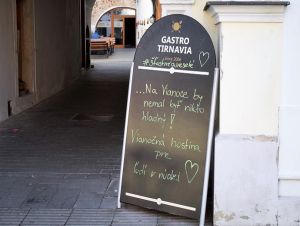 GASTRO
TIRNAVIA
...Na Vianoce by
nemal byť nikto
hladný!
Vianočná hostina
pre
ľudí v núdzi